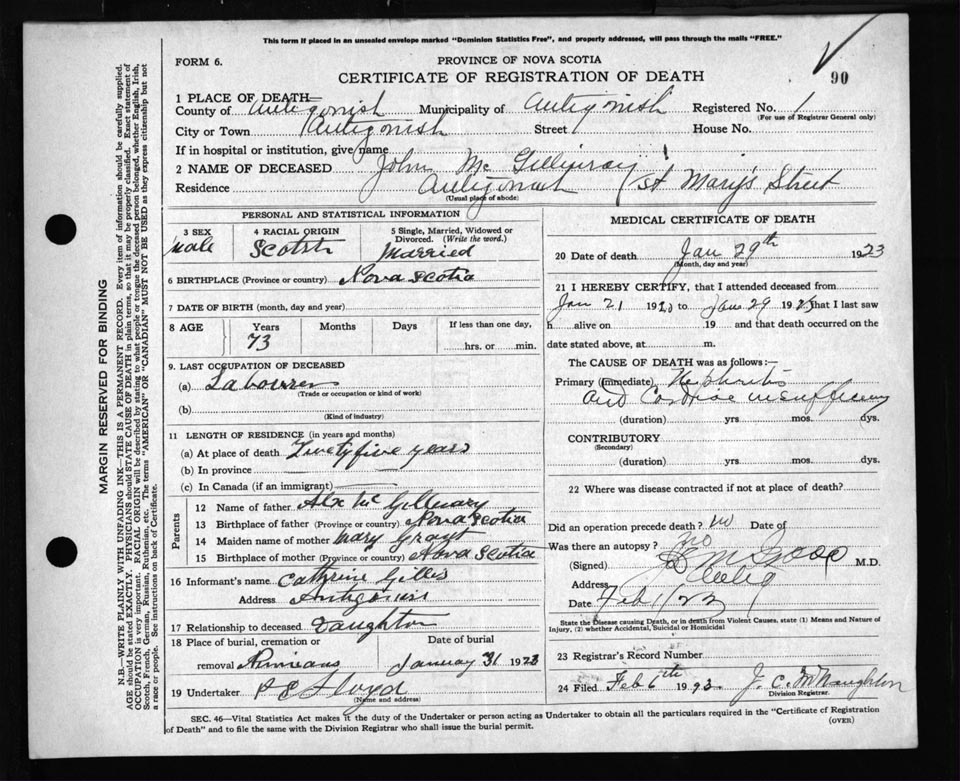 This form if placed in an unsealed envelope marked "Dominion Statistics Free", and properly addressed, will pass through the mails "FREE."
FORM 6.
PROVINCE OF NOVA SCOTIA
CERTIFICATE OF REGISTRATION OF DEATH
90
1 PLACE OF DEATH—
County of Antigonish Municipality of Antigonish Registered No. 1
(For use of Registrar General only)
City or Town Antigonish Street House No.
If in hospital or institution, give name
2 NAME OF DECEASED John Mc Gillivray
Residence Antigonish St Mary's Street
(Usual place of abode)
PERSONAL AND STATISTICAL INFORMATION
3 SEX Male
4 RACIAL ORIGIN Scotsh
5 Single, Married, Widowed or Divorced. (Write the word.) Married
6 BIRTHPLACE (Province or country) Nova Scotia
7 DATE OF BIRTH (month, day and year)
8 AGE Years 73 Months Days If less than one day, hrs. or min.
9. LAST OCCUPATION OF DECEASED
(a) Labourer
(Trade or occupation or kind of work)
(b)
(Kind of industry)
11 LENGTH OF RESIDENCE (in years and months)
(a) At place of death Twentyfive years
(b) In province
(c) In Canada (if an immigrant)
Parents
12 Name of father Alx Mc Gillivary
13 Birthplace of father (Province or country) Nova Scotia
14 Maiden name of mother Mary Grant
15 Birthplace of mother (Province or country) Nova Scotia
16 Informant's name Cathrine Gillis
Address Antigonish
17 Relationship to deceased Daughter
18 Place of burial, cremation or removal
Date of burial January 31 1923
19 Undertaker Lloyd
(Name and address)
MEDICAL CERTIFICATE OF DEATH
20 Date of death Jan 29th 1923
(Month, day and year)
21 I HEREBY CERTIFY, that I attended deceased from
Jan 21 192 to Jan 29 1923 that I last saw
h alive on 19 and that death occurred on the
date stated above, at m.
The CAUSE OF DEATH was as follows:—
Primary (immediate) Nephritis
and Cardiac insufficiency
(duration) yrs mos. dys.
CONTRIBUTORY
(Secondary)
(duration) yrs. mos. dys.
22 Where was disease contracted if not at place of death?
Did an operation precede death? no Date of
Was there an autopsy? no
(Signed) M.D.
Address Antig
Date Feb 1/23
State the Disease causing Death, or in death from Violent Causes, state (1) Means and Nature of
Injury, (2) whether Accidental, Suicidal or Homicidal
23 Registrar's Record Number
24 Filed Feb 6th 1923. J. C. McNaughton
Division Registrar.
SEC. 46—Vital Statistics Act makes it the duty of the Undertaker or person acting as Undertaker to obtain all the particulars required in the "Certificate of Registration
of Death" and to file the same with the Division Registrar who shall issue the burial permit.
(OVER)
MARGIN RESERVED FOR BINDING
N.B.—WRITE PLAINLY WITH UNFADING INK—THIS IS A PERMANENT RECORD. Every item of information should be carefully supplied.
AGE should be stated EXACTLY. PHYSICIANS should STATE CAUSE OF DEATH in plain terms, so that it may be properly classified. Exact statement of
OCCUPATION is very important. RACIAL ORIGIN will be described by stating to what people or tongue the deceased person belonged, whether English, Irish,
Scotch, French, German, Russian, Ruthenian, etc. The terms "AMERICAN" OR "CANADIAN" MUST NOT BE USED as they express citizenship but not
a race or people. See instructions on back of Certificate.